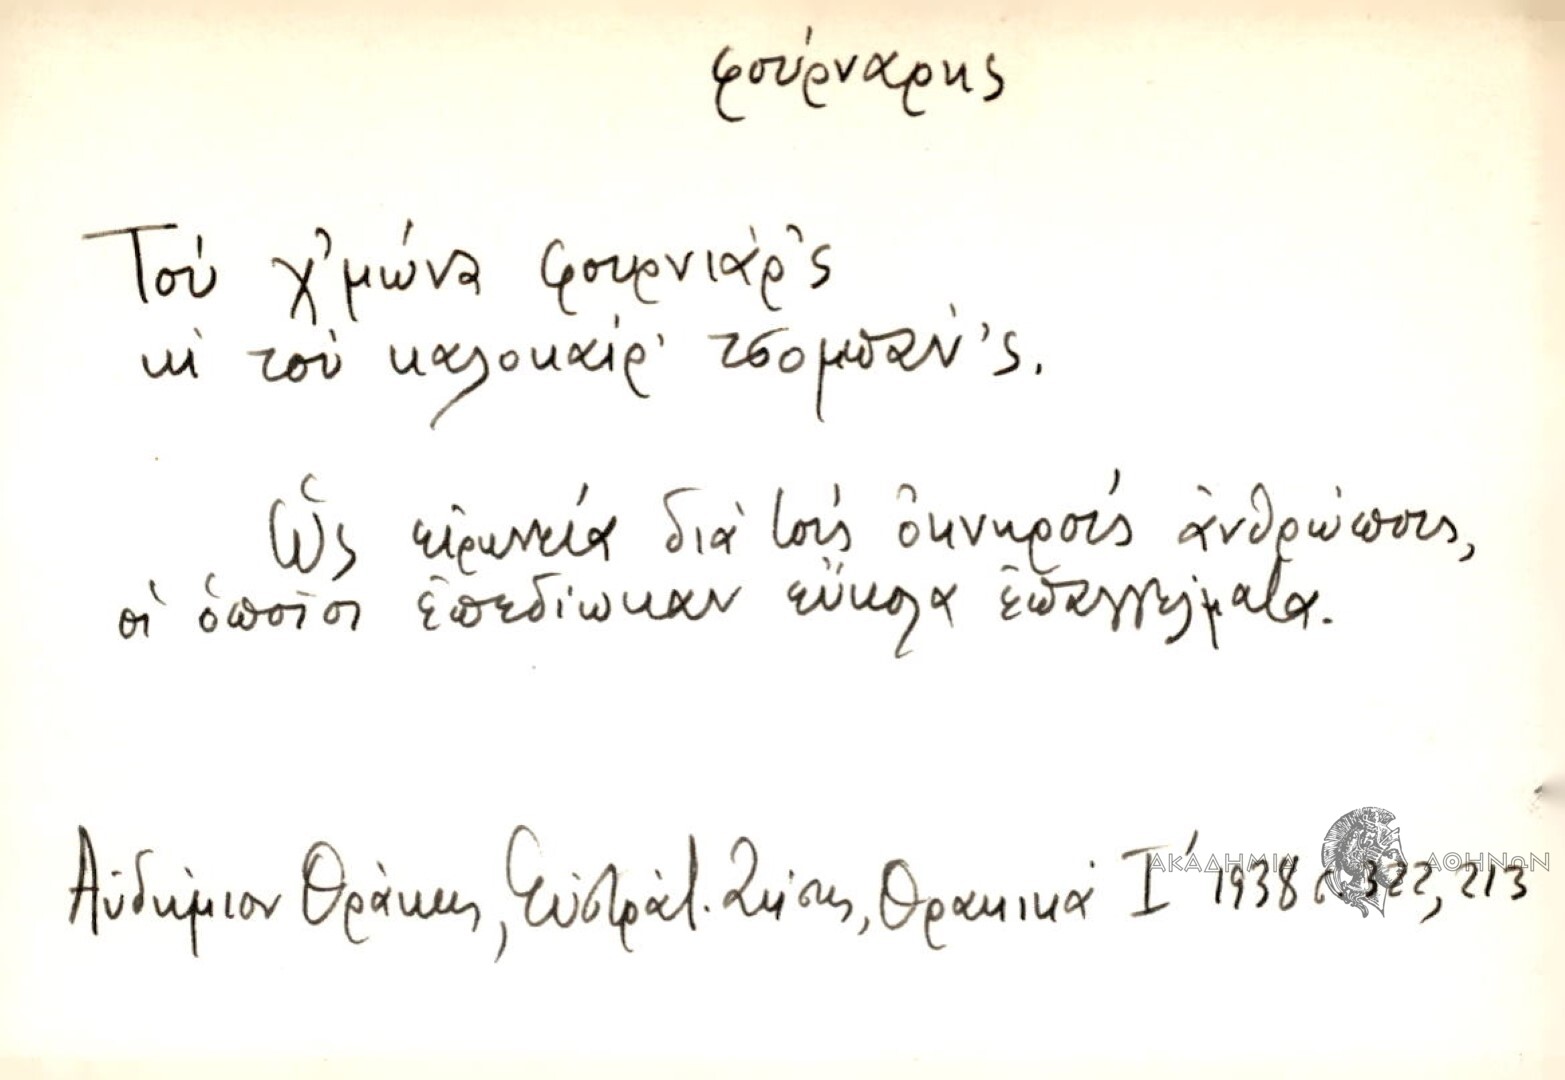 φούρναρης
Τοὺ χ'μώνα φουρνιάρ'ς
κὶ τοὺ καλοκαίρ' τσομπάν'ς.
Ὡς εἰρωνεία διὰ τοὺς ὀκνηροὺς ἀνθρώπους,
οἱ ὁποῖοι ἐπεδίωκαν εὔκολα ἐπαγγέλματα.
Αὐδήμιον Θράκης, Εὐστρατ. Ζήσης, Θρακικά Ι' 1938 σ. 322, 213
ΑΚΑΔΗΜΙΑ ΑΘΗΝΩΝ